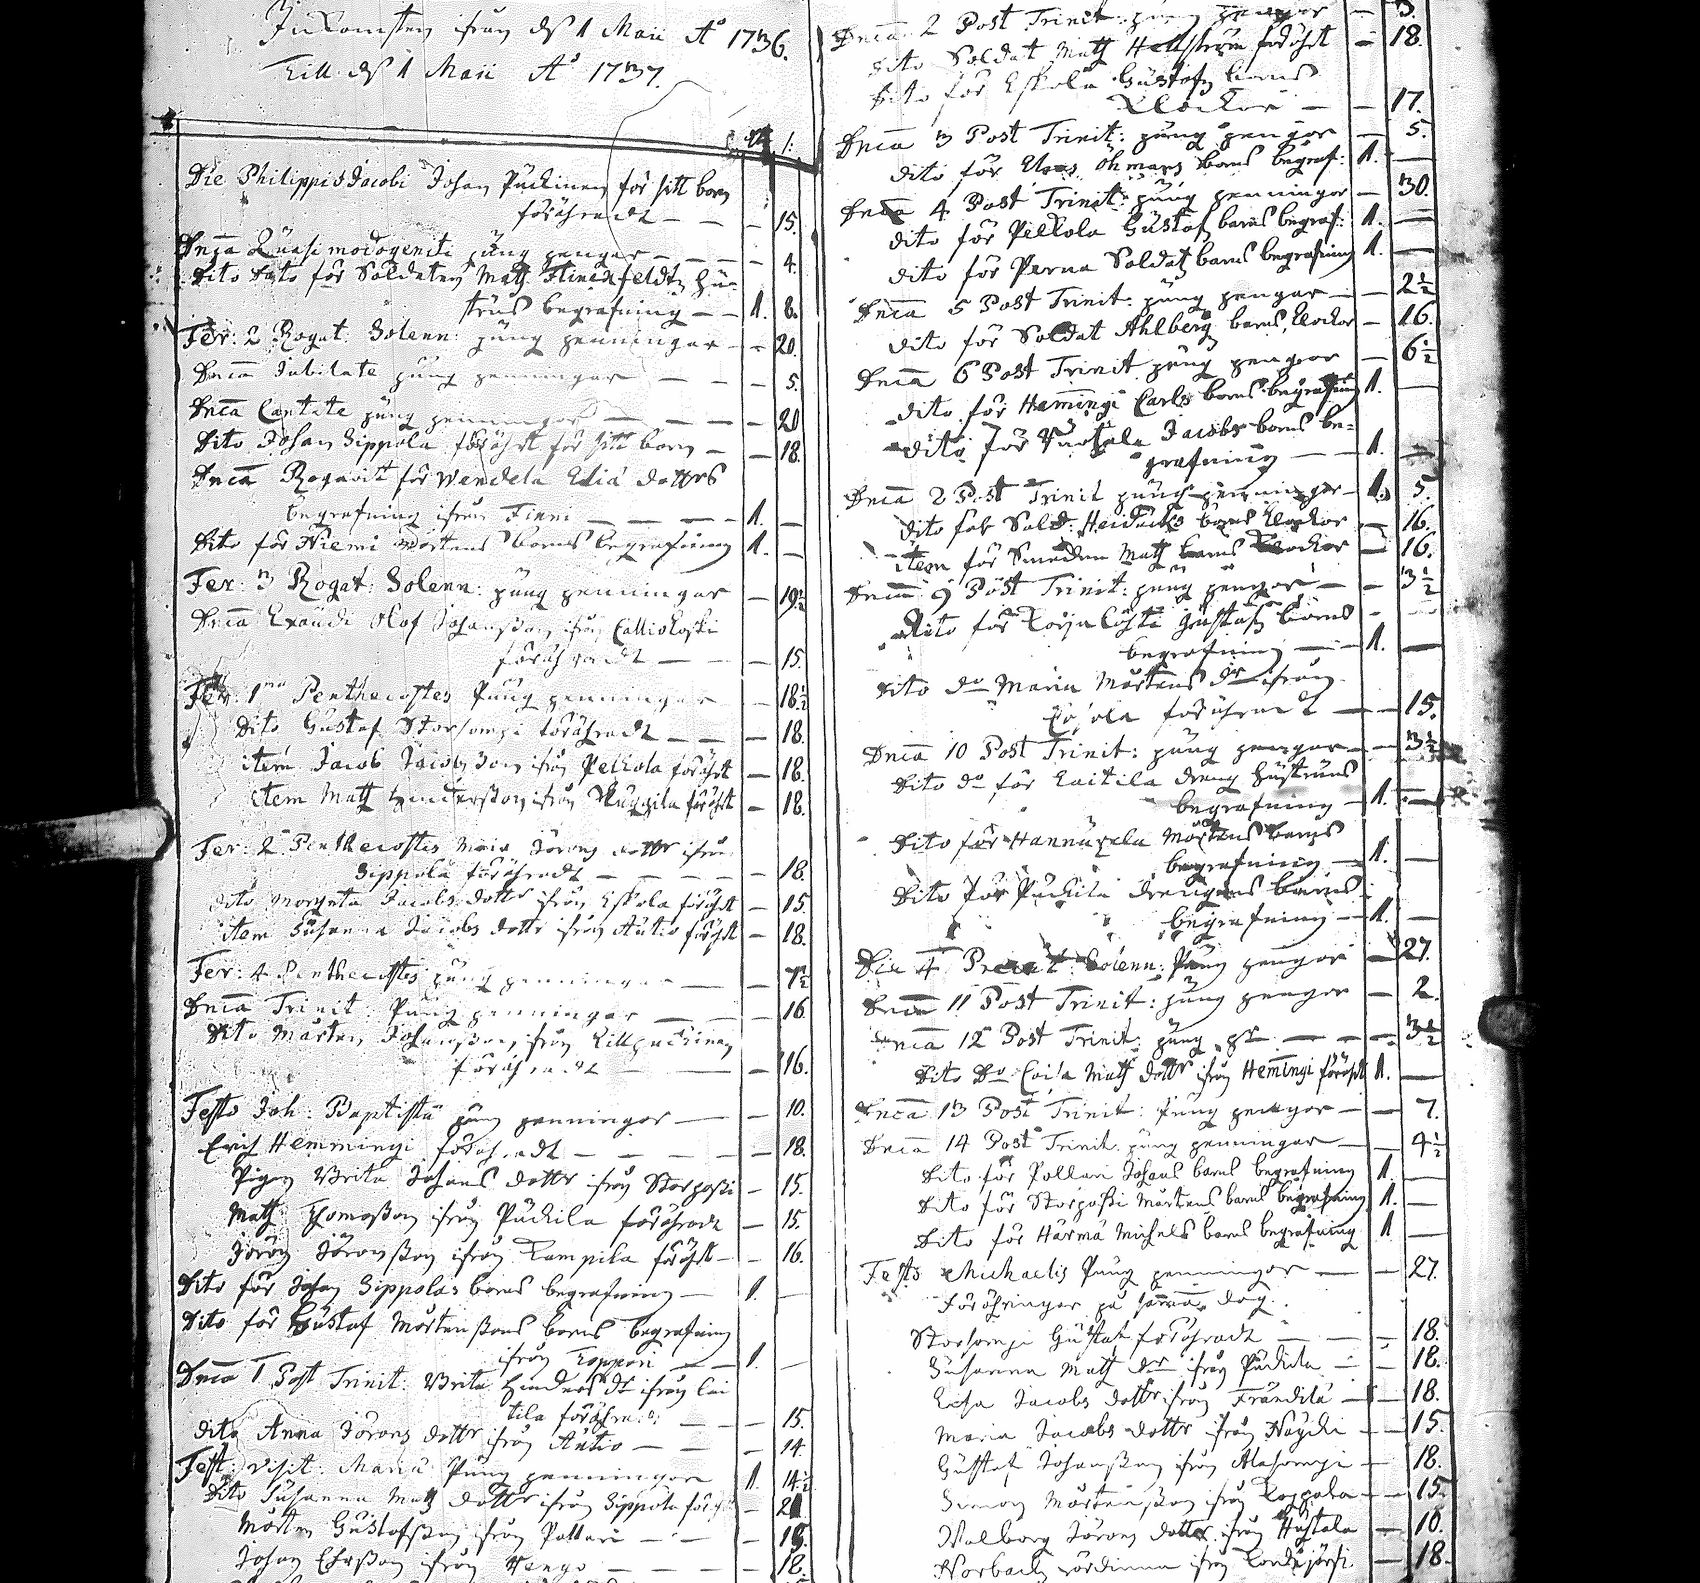 Inkomsten ifrån d. 1 Maii A° 1736.
till d. 1 Maii A° 1737.
Die Philippi & Jacobi Johan Puckinen för sitt barn
förähradt — — — 15.
Dnica Quasimodogeniti pung pengar — — — 4.
Dito för Soldaten Math. hu-
strus begrafning — — 1. 8.
Fer: 2 Rogat: Solenn: pung penningar — — 20.
Dnica Jubilate pung penningar — — — 5.
Dnica Cantate pung penningar — — — 20
Dito Johan Sippola förährt för sitt barn — — 18.
Dnica Rogavit för Wendela Eliæ dotters
begrafning ifrån Finni — — — 1. —
Dito för Niemi Mårtens barns begrafning 1. —
Fer: 3 Rogat: Solenn: pung penningar — 19½
Dnica Exaudi Olof Johansson ifrån Calliokoski
förähradt — — — 15.
Fer: 1ma Penthecostes Pung penningar — 18½
Dito Gustaf Storsompi förähradt — — — 18.
item Jacob Jacobsson ifrån Pelkola förährt — 18.
item Math Hindersson ifrån förährt — 18.
Fer: 2 Penthecostes Maria Jörans dotter ifrån
Sippola förähradt — — — 18.
dito Margreta Jacobs dotter ifrån Eskola förährt — 15.
item Susanna Jacobs dotter ifrån Autio förährt — 18.
Fer: 4 Penthecostes pung penningar — — 7½
Dnica Trinit: Pung penningar — — — 16
Dito Mårten Johansson ifrån Lillpuckinen
förähradt — — 16.
Festo Joh: Baptistæ pung penningar — — 10.
Erich Hemmingi förähradt — — — 18.
Pigan Brita Johans dotter ifrån Storpossi — 15.
Math Thomasson ifrån Puckila förähradt — 15.
Jöran Jöransson ifrån Lampila föräht — — 16.
Dito för Johan Sippolas barns begrafning — 1. —
Dito för Gustaf Mårtenssons barns begrafning
ifrån Koppari — — 1. —
Dnica 1 Post Trinit: Brita Hinders dr ifrån Lai
tila förähradt — — 15.
dito Anna Jörans dotter ifrån Autio — — — 14
Fest: visit: Mariæ Pung penningar 1. 14½
Dito Susanna Math dotter ifrån Sippola föräht — 21
Mårten Gustafsson ifrån Pollari — — 18.
Johan Ersson ifrån — — — 18.
Dnica 2 Post Trinit: pung pengar — 3.
dito Soldat Math Hellström föräht — 18.
dito för Eskola Gustafs barns
klockor — — 17.
Dnica 3 Post Trinit: pung pengar — 5.
dito för Öhmans barns begraf: 1. —
Dnica 4 Post Trinit: pung penningar — 30.
dito för Pelkola Gustaf barns begraf: 1. —
dito för Perna Soldat barns begrafning 1. —
Dnica 5 Post Trinit: pung pengar — — 2½
dito för Soldat Ahlberg barns klockor — 16.
Dnica 6 Post Trinit pung pengar — 6½
dito för Hemmingi Carls barns begrafning 1. —
dito för Jacobs barns be-
grafning — — 1. —
Dnica 2 Post Trinit pung penningar — 1. 5.
dito för Sold: barns klockor — 16.
item för Smeden Math barns klockor — 16.
Dnica 9 Post Trinit: pung pengar — — 3½
dito för Gustafs barns
begrafning — 1. —
dito do Maria Mårtens dr ifrån
föräradt — — 15.
Dnica 10 Post Trinit: pung pengar — — 3½
dito do för Laitila dreng hustrus
begrafning — 1. —
Dito för Hannuxela Mårtens barns
begrafning — 1. —
Dito för Puckila drengens barns
begrafning — 1. —
Die 4 Precat: Solenn: Pung pengar — 27.
Dnica 11 Post Trinit: pung pengar — 2.
Dnica 12 Post Trinit: pung pr — — — 3½
Dito Do Caisa Math dotter ifrån Hemingi föräht 1. —
Dnica 13 Post Trinit: Pung pengar — — 7.
Dnica 14 Post Trinit: pung penningar — 4½
Dito för Pollari Johans barns begrafning 1. —
Dito för Storpossi Mårtens barns begrafning 1. —
Dito för Härmä Michels barns begrafning 1 —
Festo Michaelis Pung penningar — — 27.
Föräringar på samma dag.
Storsompi Gustaf föräradt — — 18.
Susanna Math dr ifrån Puckila — — 18.
Lisa Jacobs dotter ifrån Frändilä — 18.
Maria Jacobs dotter ifrån — 15.
Gustaf Johansson ifrån Alasompi — 18.
Simon Mårtensson ifrån — 15.
Walborg Jörans dotter ifrån — 10.
ifrån — 18.